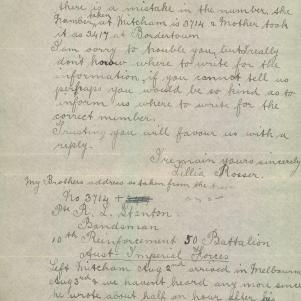 there is a mistake in the number, the
number taken at Mitcham is 3714 & Mother took
it as 3417 at Bordertown
I am sorry to trouble you, but really
don't know where to write for the
information, if you cannot tell us
perhaps you would be so kind as to
inform us where to write for the
correct number.
Trusting you will favour us with a
reply.
I remain yours sincerely
Lillia Rosser.
My Brothers address as taken from the
No 3714
Pte R. L. Stanton.
Bandsman
10th Reinforcement 50 Battalion
Aust Imperial Forces
Left Mitcham Aug 2nd arrived in Melbourne
Aug 3rd & we havent heard any more since
he wrote about half an hour after